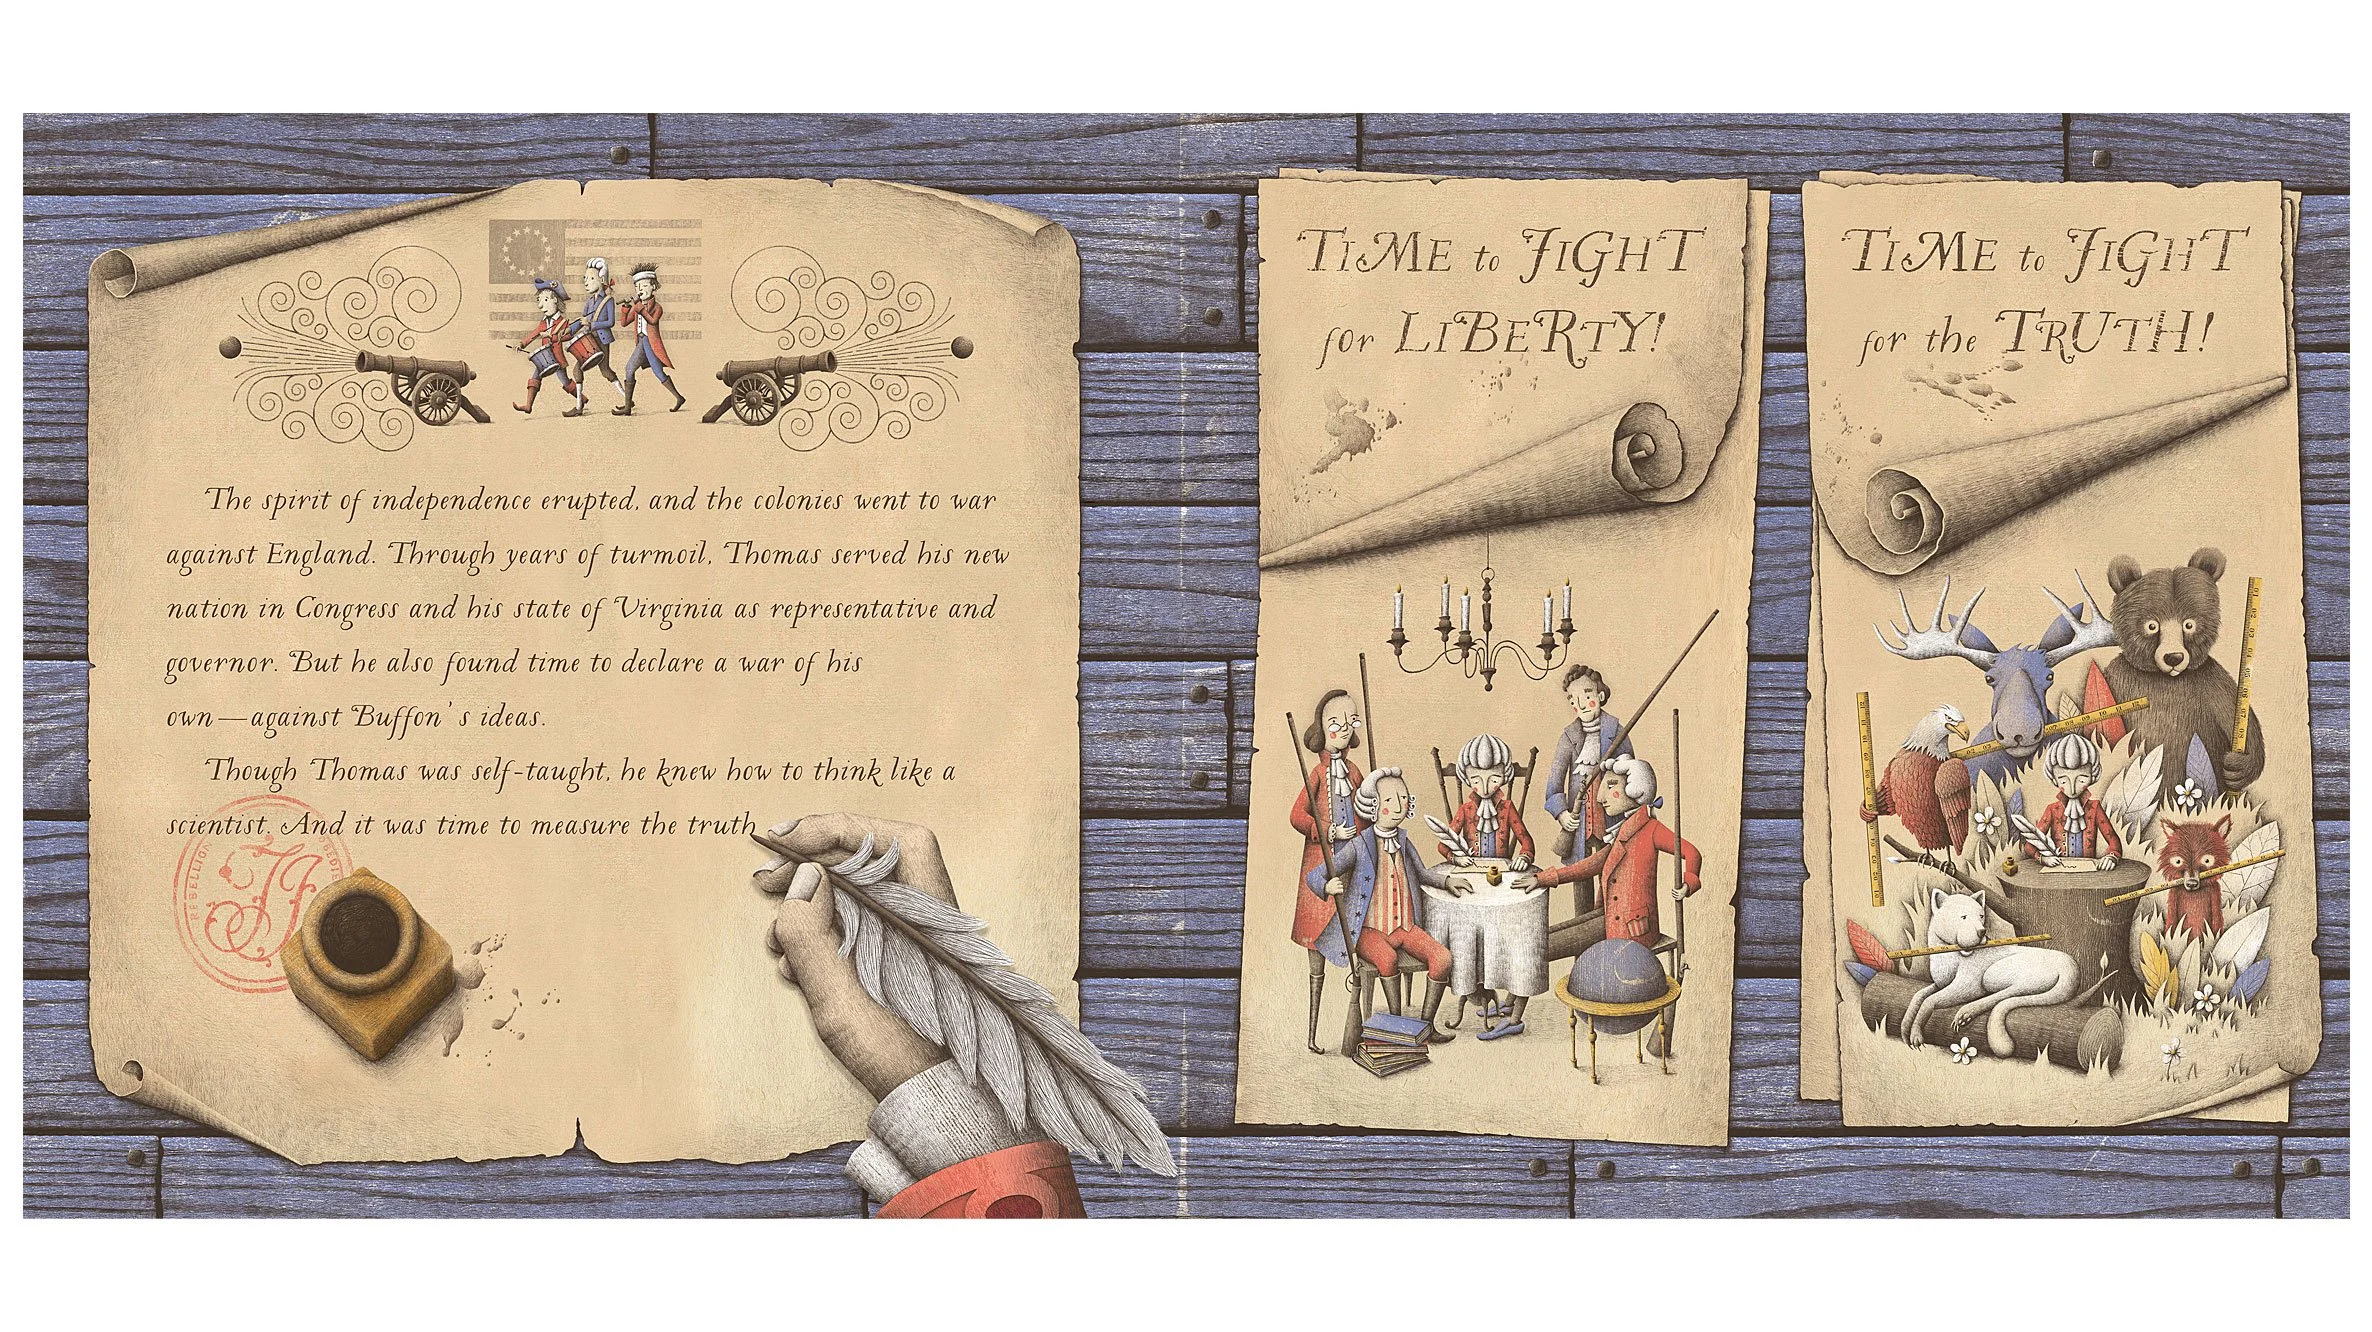 The spirit of independence erupted, and the colonies went to war
against England. Through years of turmoil, Thomas served his new
nation in Congress and his state of Virginia as representative and
governor. But he also found time to declare a war of his
own—against Buffon's ideas.
Though Thomas was self-taught, he knew how to think like a
scientist. And it was time to measure the truth
REBELLION
TJ
TIME to FIGHT
for LIBERTY!
TIME to FIGHT
for the TRUTH!